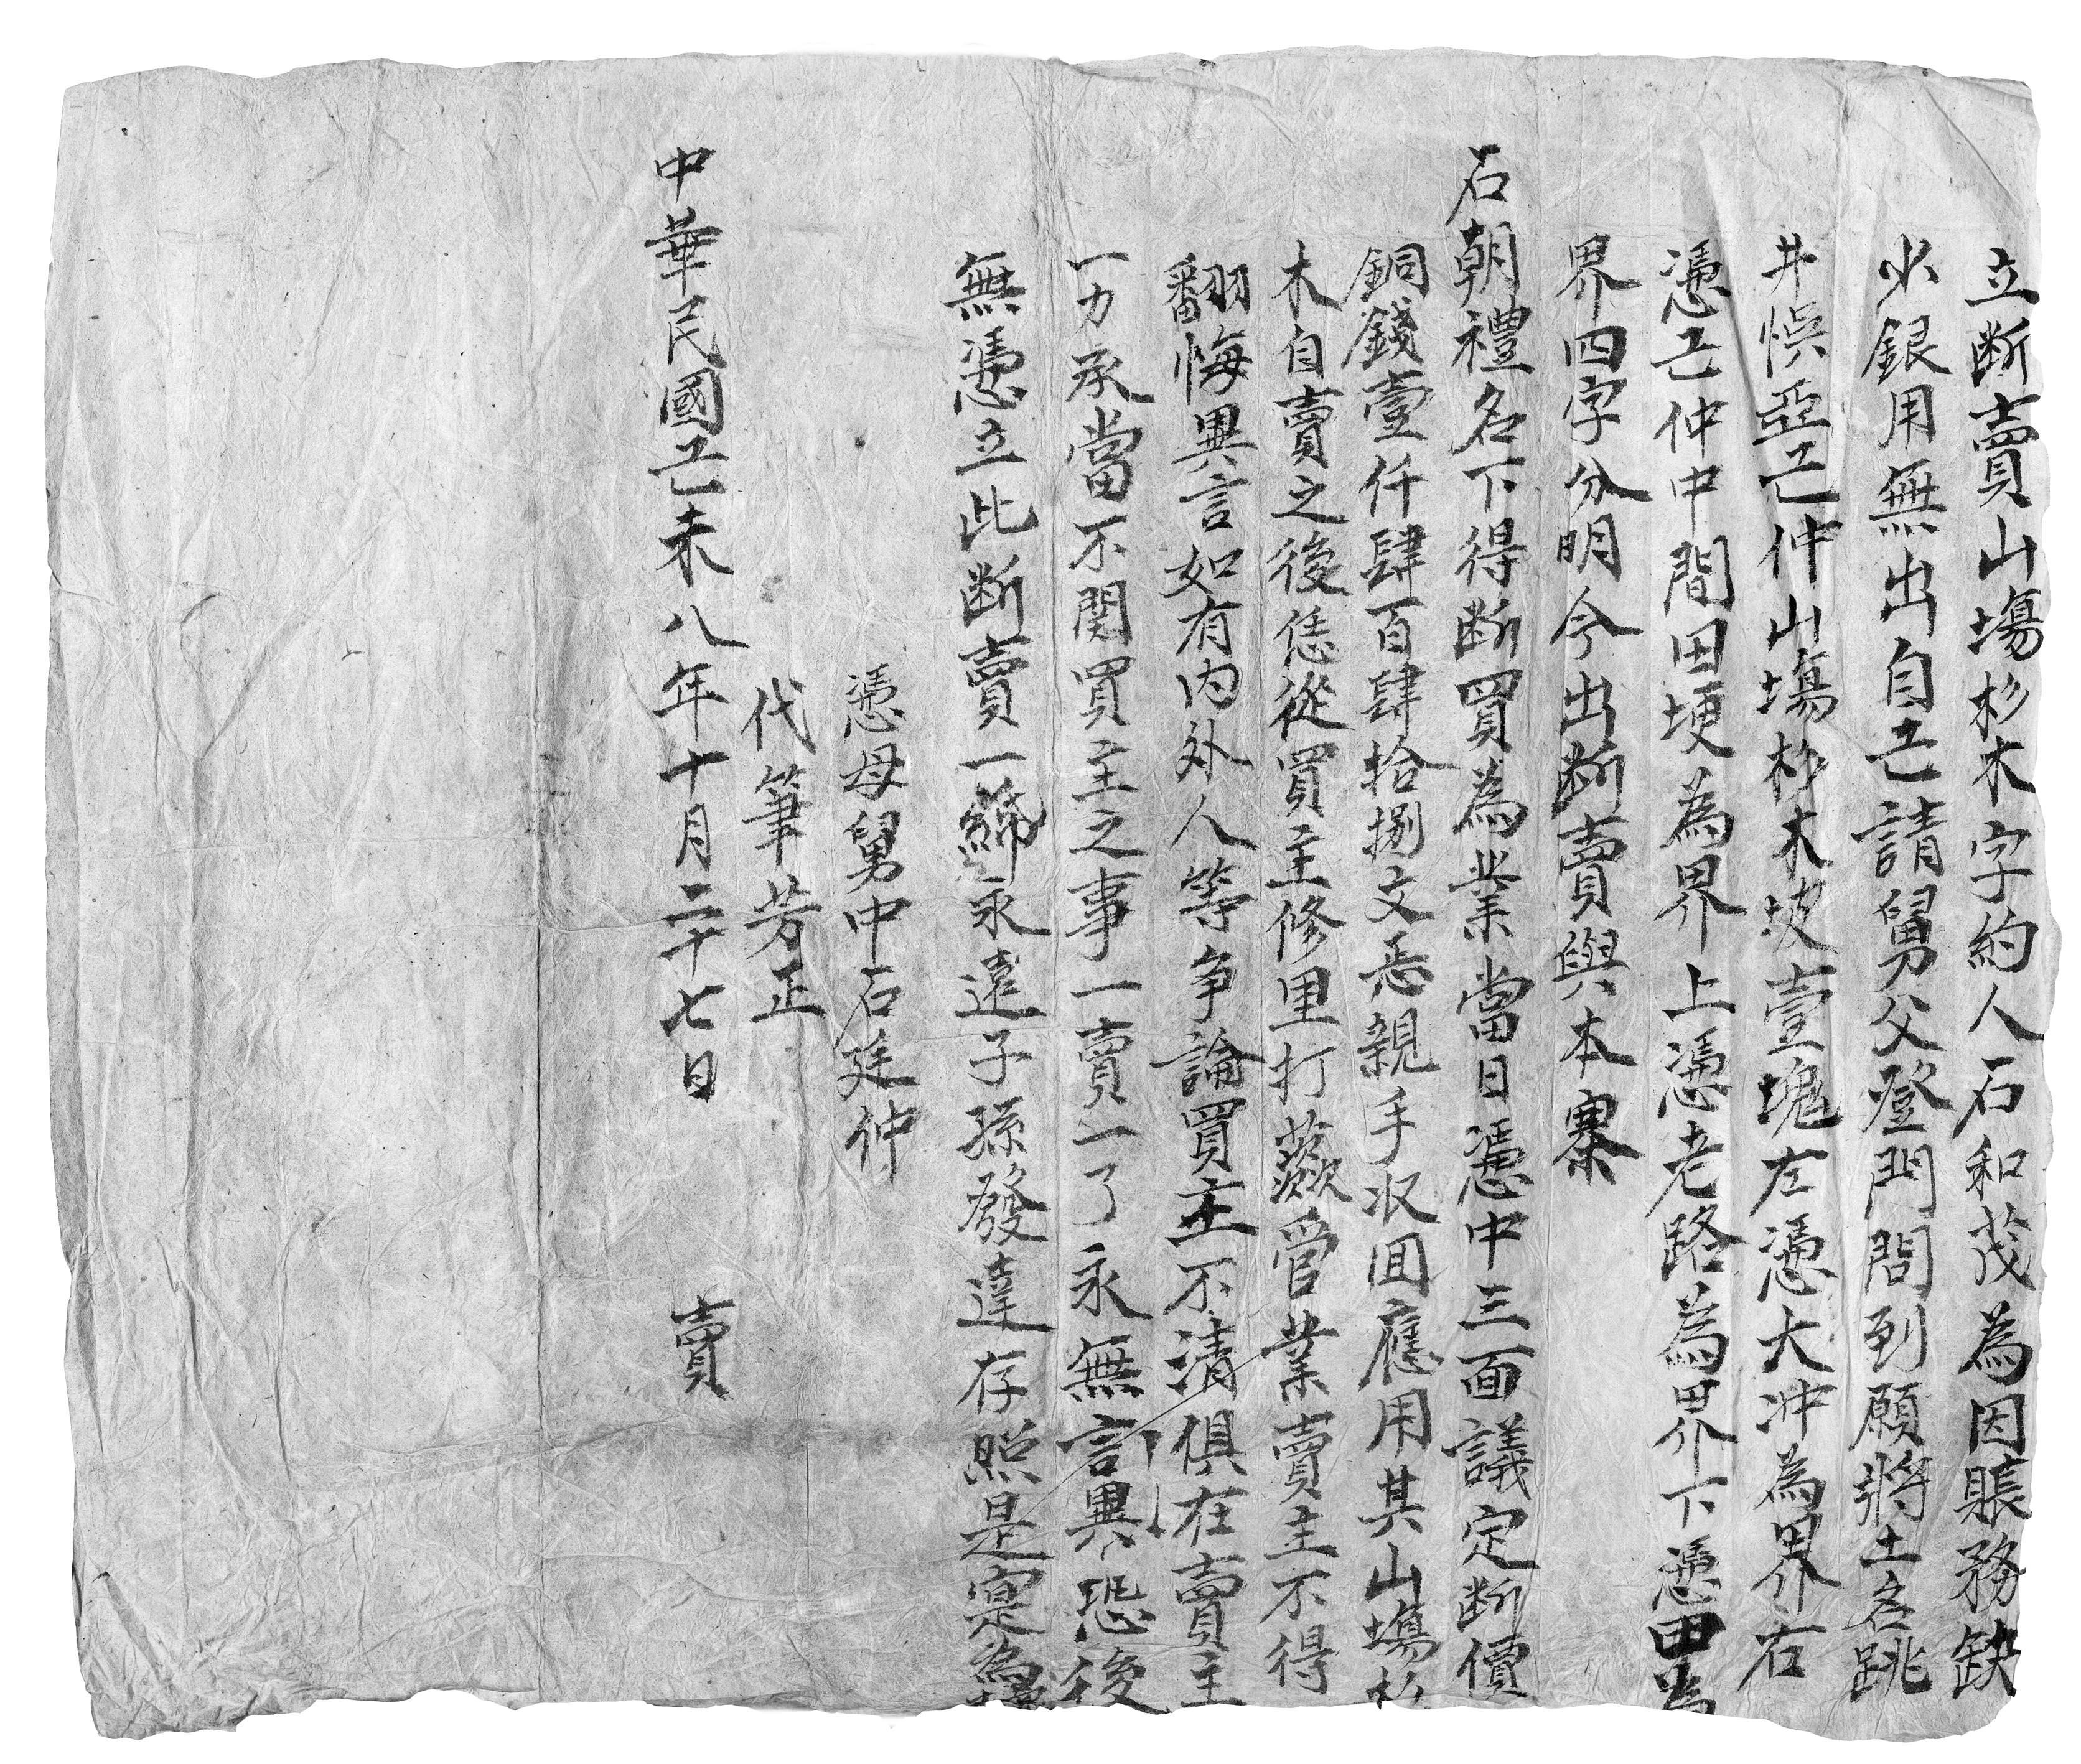 立断賣山塲杉木字約人石和茂為因賬務缺
少銀用無出自己請舅父登門問到願將土名跳
井悞亞己仲山塲杉木坡壹塊左憑大冲為界右
憑己仲中間田埂為界上憑老路為界下憑田為
界四字分明今出断賣與本寨
石朝禮名下得断買為業當日憑中三面議定断價
銅錢壹仟肆百肆拾捌文悉親手收囬應用其山塲杉
木自賣之後恁從買主修里打蕨管業賣主不得
翻悔異言如有内外人等争論買主不清俱在賣主
一力承當不関買主之事一賣一了永無言異恐後
無憑立此断賣一紙永遠子孫發達存照是寔為據
憑母舅中石廷仲
代筆芳正
中華民國己未八年十月二十七日 賣